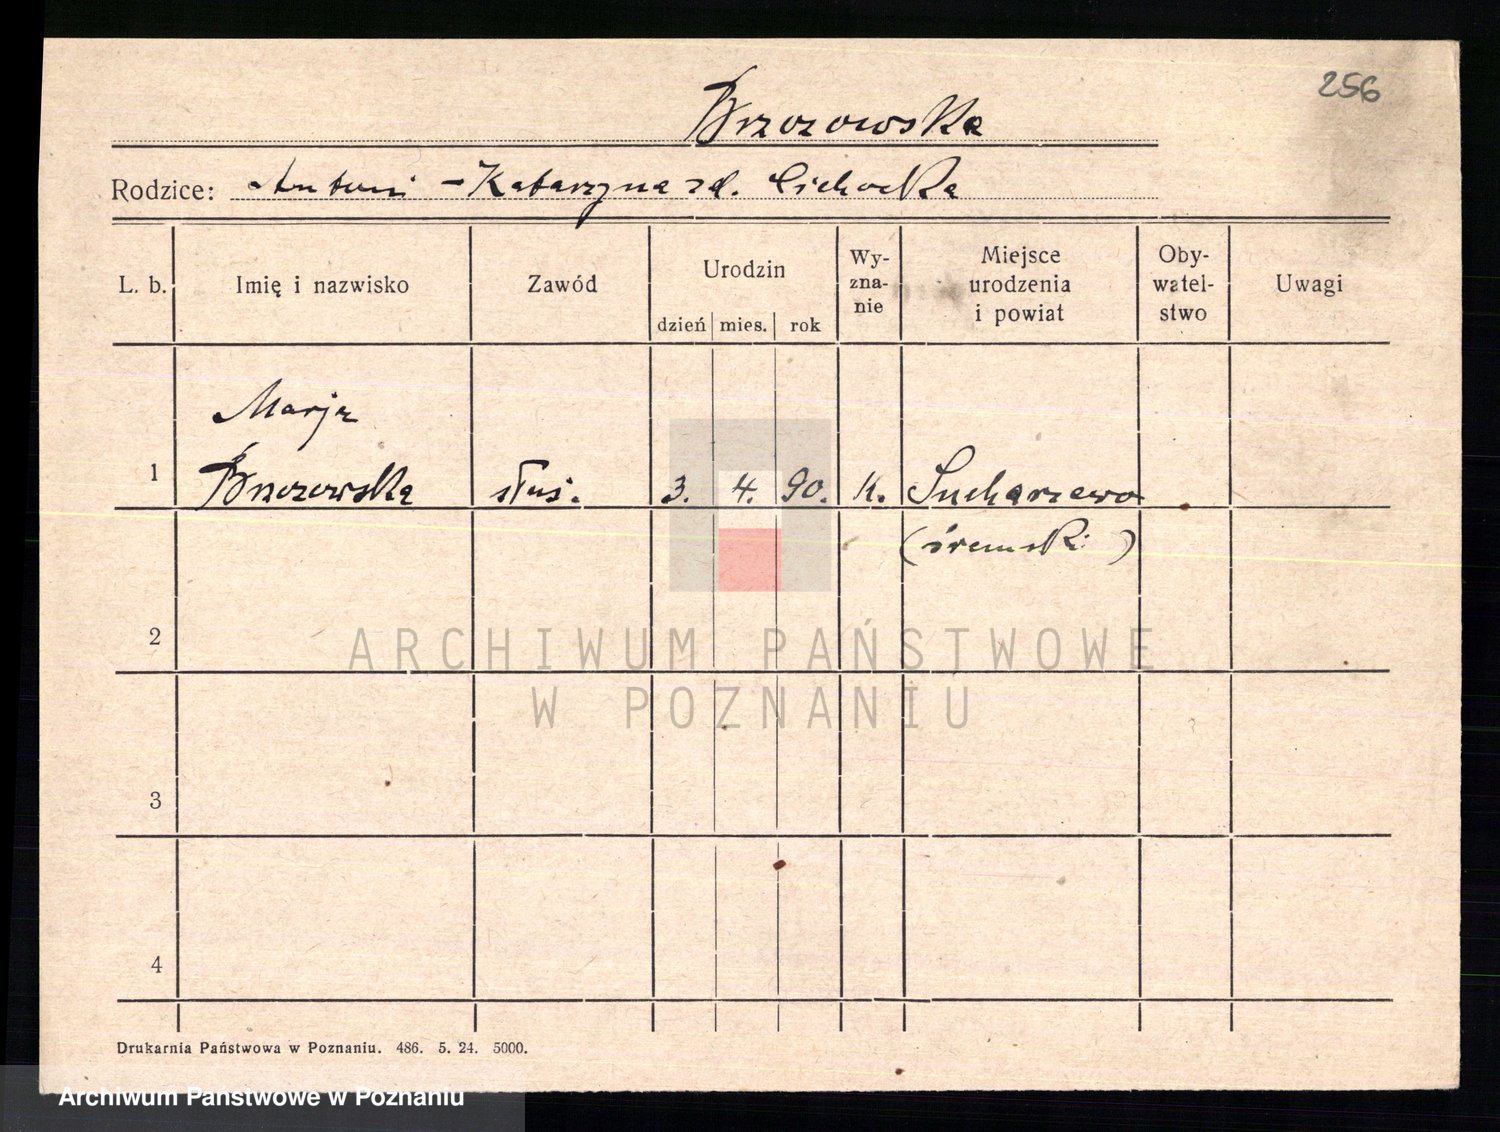 256
Brzozowska
Rodzice: Antoni - Katarzyna zd. Cichocka
L. b. Imię i nazwisko Zawód Urodzin dzień mies. rok Wy-zna-nie Miejsce urodzenia i powiat Oby-watel-stwo Uwagi
Marja
1 Brzozowska służ. 3. 4. 90. k. Sucharzewo
(śremski)
2
ARCHIWUM PAŃSTWOWE
W POZNANIU
3
4
Drukarnia Państwowa w Poznaniu. 486. 5. 24. 5000.
Archiwum Państwowe w Poznaniu